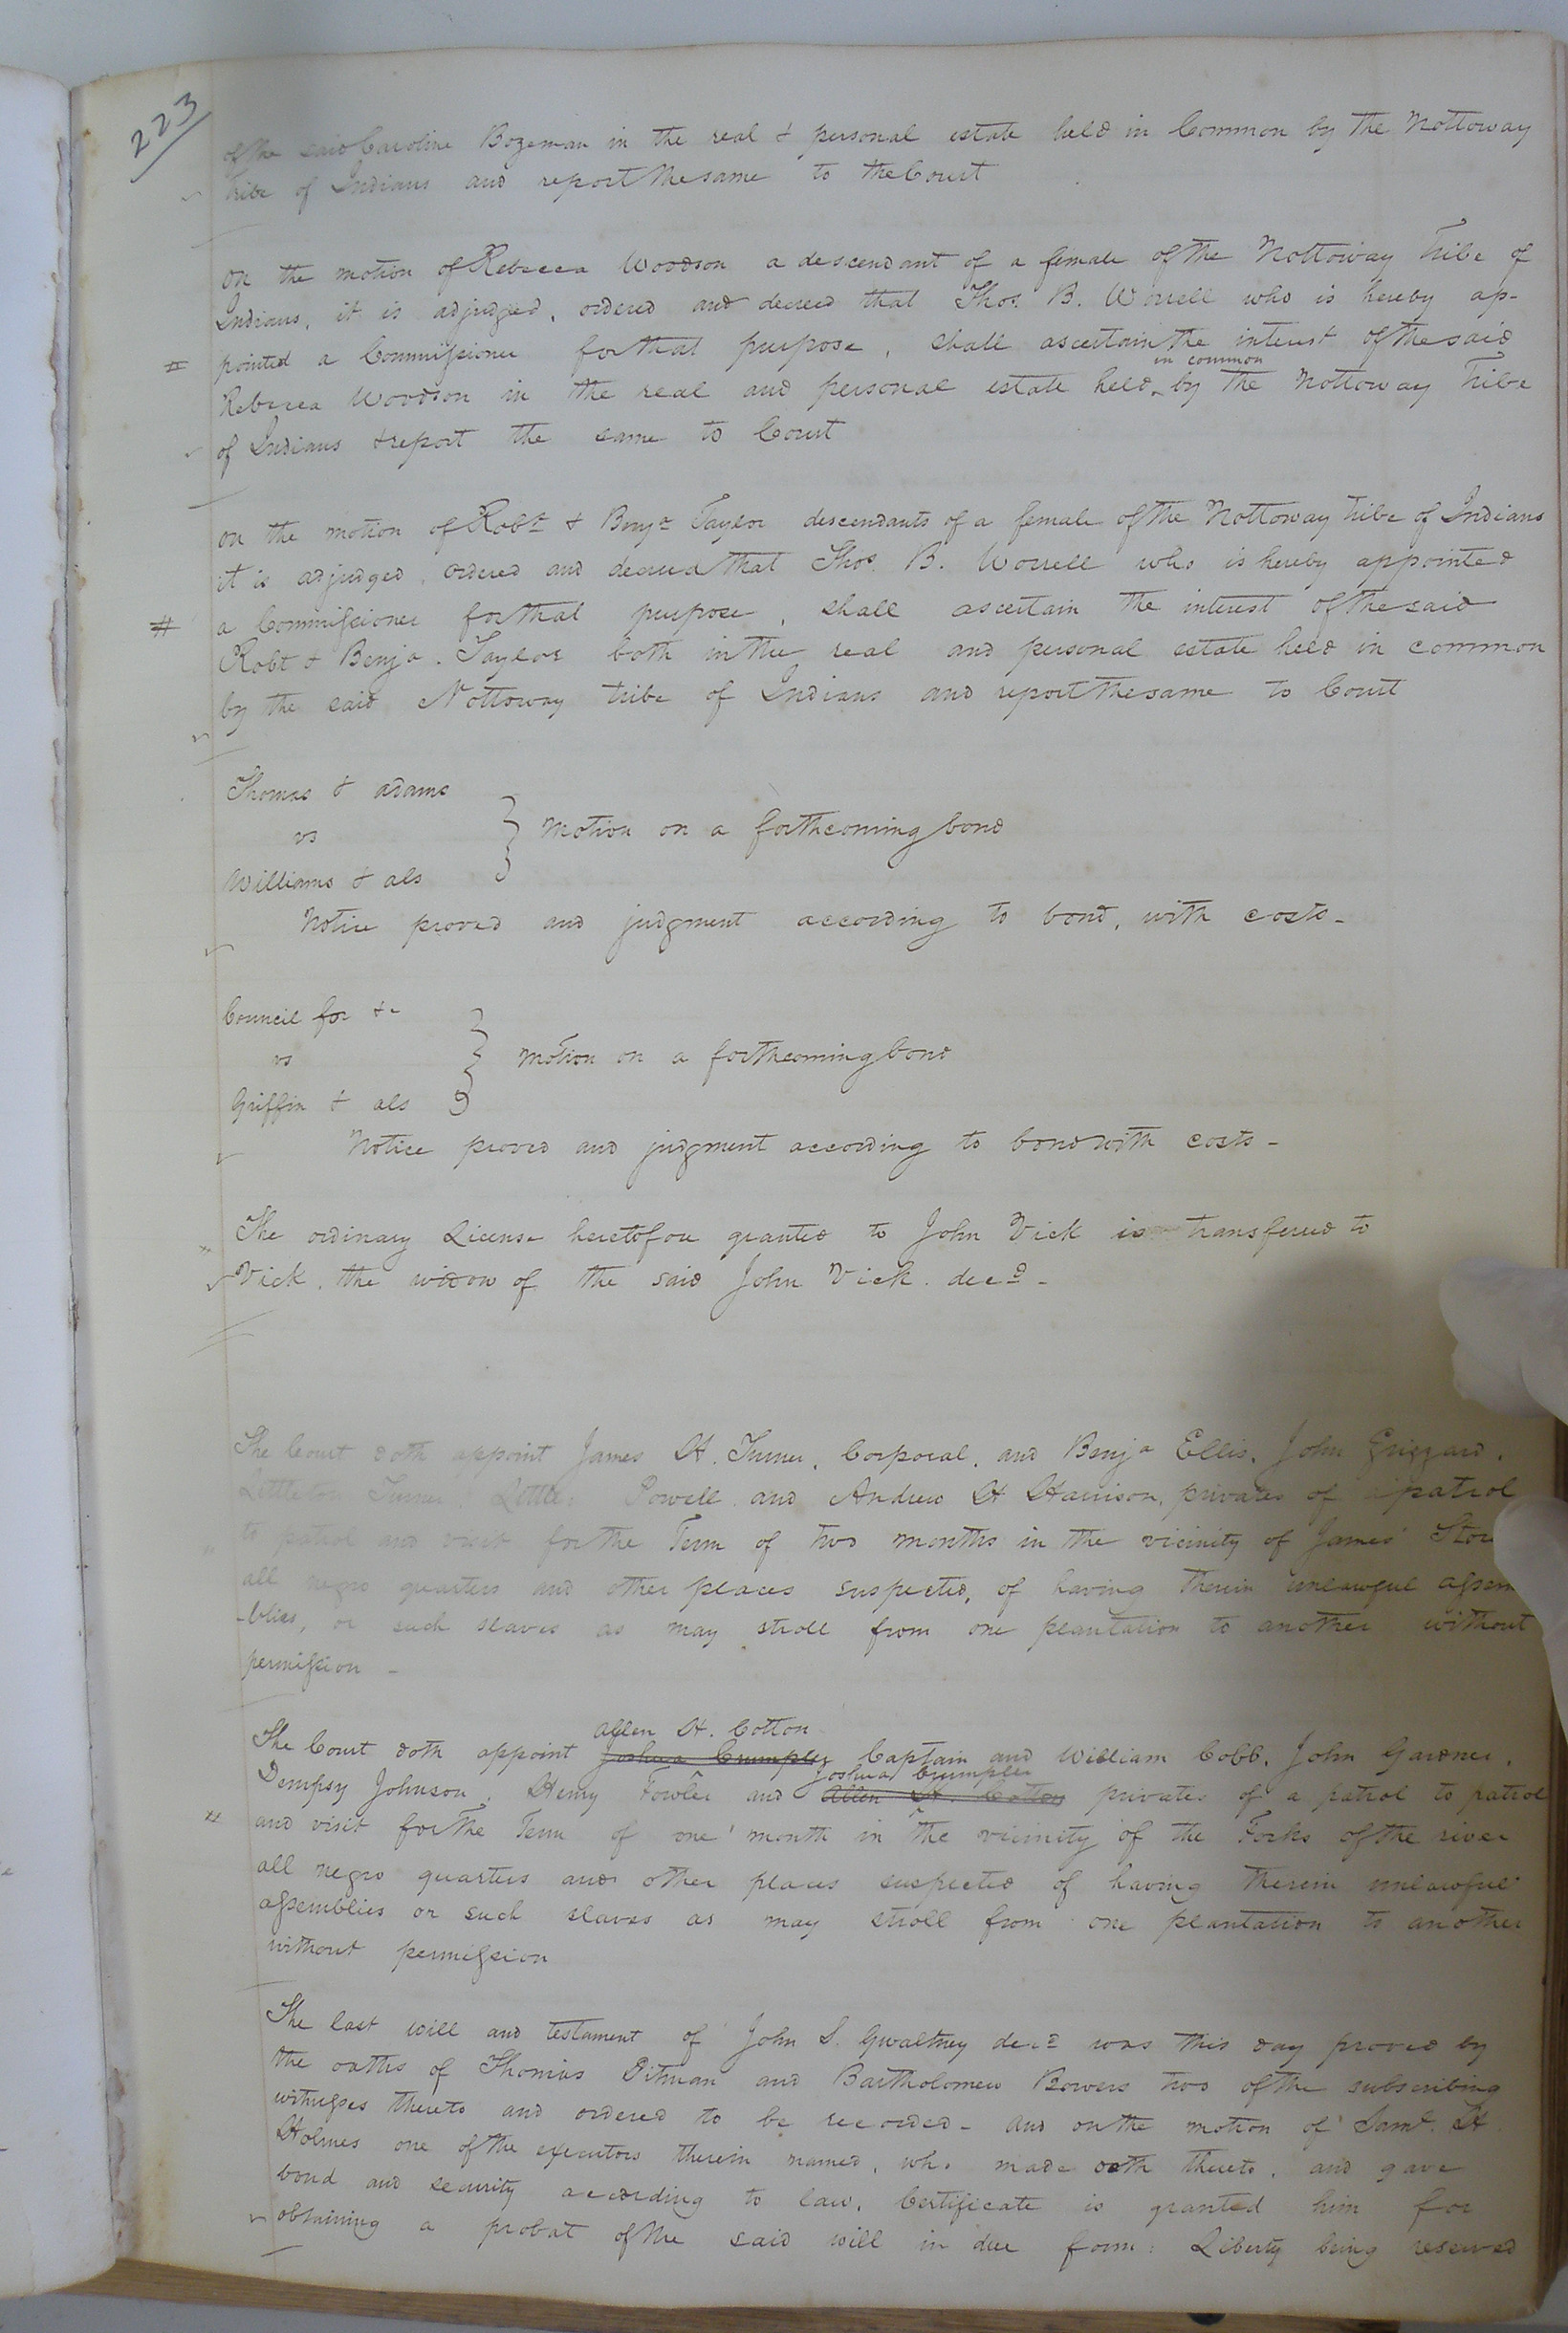 223
of the said Caroline Bozeman in the real & personal estate held in Common by the Nottoway
Tribe of Indians and report the same to the Court
On the motion of Rebecca Woodson a descendant of a female of the Nottoway Tribe of
Indians, it is adjudged, ordered and decreed that Thos. B. Worrell who is hereby ap-
# pointed a Commissioner for that purpose, shall ascertain the interest of the said
in common
Rebecca Woodson in the real and personal estate held ‸ by the Nottoway Tribe
of Indians & report the same to Court
On the motion of Robt & Benja Taylor descendants of a female of the Nottoway Tribe of Indians
it is adjudged, ordered and decreed that Thos. B. Worrell who is hereby appointed
# a Commissioner for that purpose, shall ascertain the interest of the said
Robt & Benja. Taylor both in the real and personal estate held in common
by the said Nottoway tribe of Indians and report the same to Court
Thomas & Adams
vs } Motion on a forthcoming bond
Williams & als
Notice proved and judgment according to bond, with costs-
Council for &c
vs } Motion on a forthcoming bond
Griffin & als
Notice proved and judgment according to bond with costs-
The ordinary License heretofore granted to John Vick is transferred to
Vick, the widow of the said John Vick. decd-
The Court doth appoint James H. Turner, Corporal, and Benja Ellis, John Grizzard,
Littleton Turner, Powell and Andrew H Harrison, privates of a patrol
to patrol and visit for the Term of two months in the vicinity of James' Store
all negro quarters and other places suspected, of having therein unlawful assem
-blies, or such slaves as may stroll from one plantation to another without
permission -
Allen H. Cotton
The Court doth appoint Joshua Crumpler Captain and William Cobb, John Gardner,
Joshua Crumpler
Dempsy Johnson, Henry Fowler and Allen H. Cotton privates of a patrol to patrol
and visit for the Term of one month in the vicinity of the Forks of the river
all negro quarters and other places suspected of having therein unlawful
assemblies or such slaves as may stroll from one plantation to another
without permission
The last will and testament of John S. Gwaltney decd was this day proved by
the oaths of Thomas Pitman and Bartholomew Bowers two of the subscribing
witnesses thereto and ordered to be recorded- And on the motion of Saml. H
Holmes one of the executors therein named, who made oath thereto, and gave
bond and security according to law, Certificate is granted him for
obtaining a probat of the said will in due form: Liberty being reserved